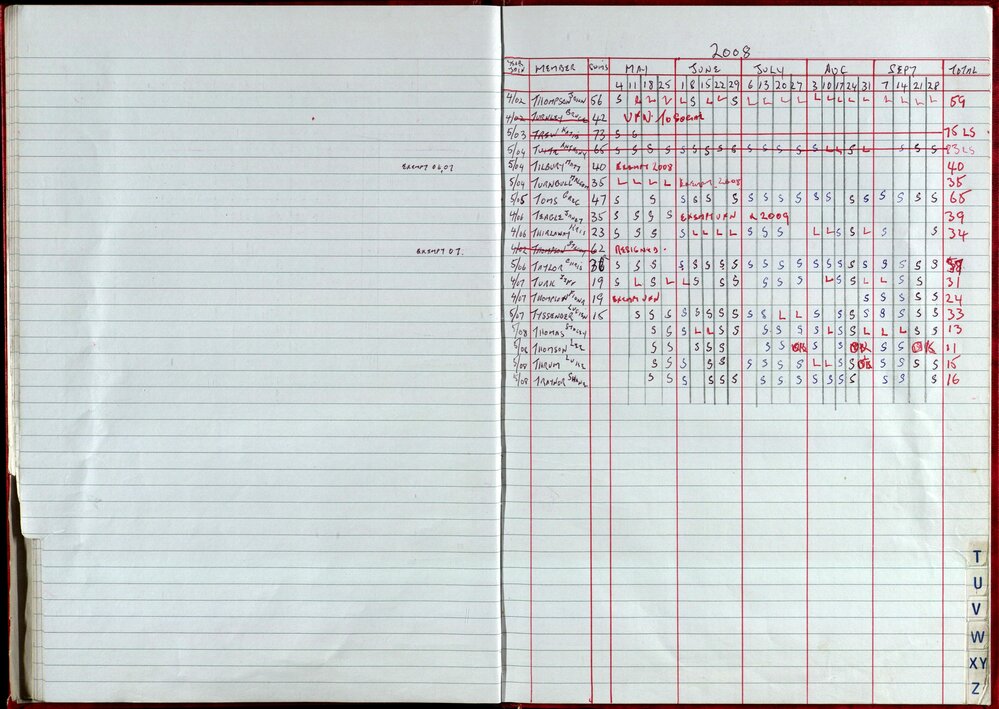 2008
YEAR JOIN MEMBER SWIMS MAY JUNE JULY AUG SEPT TOTAL
4 11 18 25 1 8 15 22 29 6 13 20 27 3 10 17 24 31 7 14 21 28
4/02 THOMPSON JOHN 56 S L L L L S L L S L L L L L L L L L L L L L 59
4/02 TURNLEY 42 UFN To Social
5/03 TREW 73 S 75 LS
5/04 65 S S S S S S S S S S S S S S L L S L S S S 83 LS
EXEMPT 06,07 5/04 TILBURY 40 EXEMPT 2008 40
5/04 TURNBULL 35 L L L L EXEMPT 2008 35
5/05 TOMS GREG 47 S S S S S S S S S S S S S S S S S S 65
4/06 TEAGLE 35 S S S S EXEMPT UFN & 2009 39
4/06 THIRLAWAY 23 S S S S L L L L S S S L L S L S S 34
EXEMPT 07. 4/02 THOMPSON 62 RESIGNED.
5/06 TAYLOR CHRIS S S S S S S S S S S S S S S S S S S S S S
4/07 TURK JEFF 19 S L S L L S S S S S S L S L L S S 31
4/07 THOMPSON FIONA 19 EXEMPT UFN S S S S S 24
5/07 TYSSENDER 15 S S S S S S S S S S L L S S S S S S S S S 33
5/08 THOMAS STACEY S S S L L S S S S S L S S L L S S 13
5/08 THOMSON LEE S S S S S S S OK S S OK S S OK 11
5/08 THRUM LUKE S S S S S S S S S L L S OK S S S S 15
5/08 TRAYNOR SHANE S S S S S S S S S S S S S S S S S 16
T
U
V
W
XY
Z